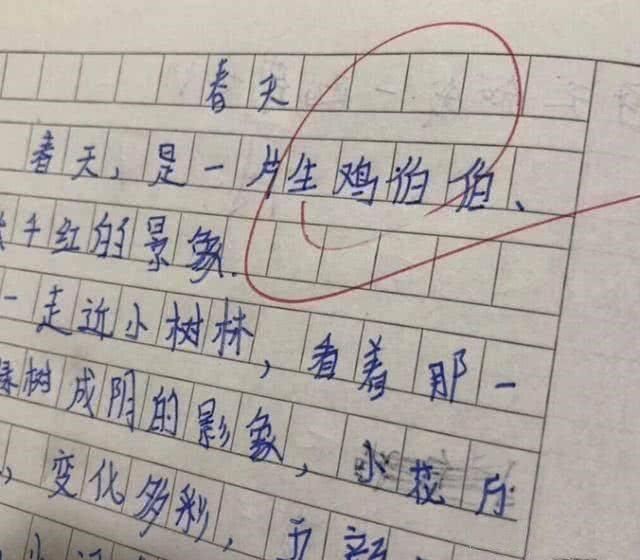 春天
春天，是一片生鸡伯伯、
千红的景象.
一走近小树林，看着那一
树成阴的影象，小花片
，变化多彩，五颜